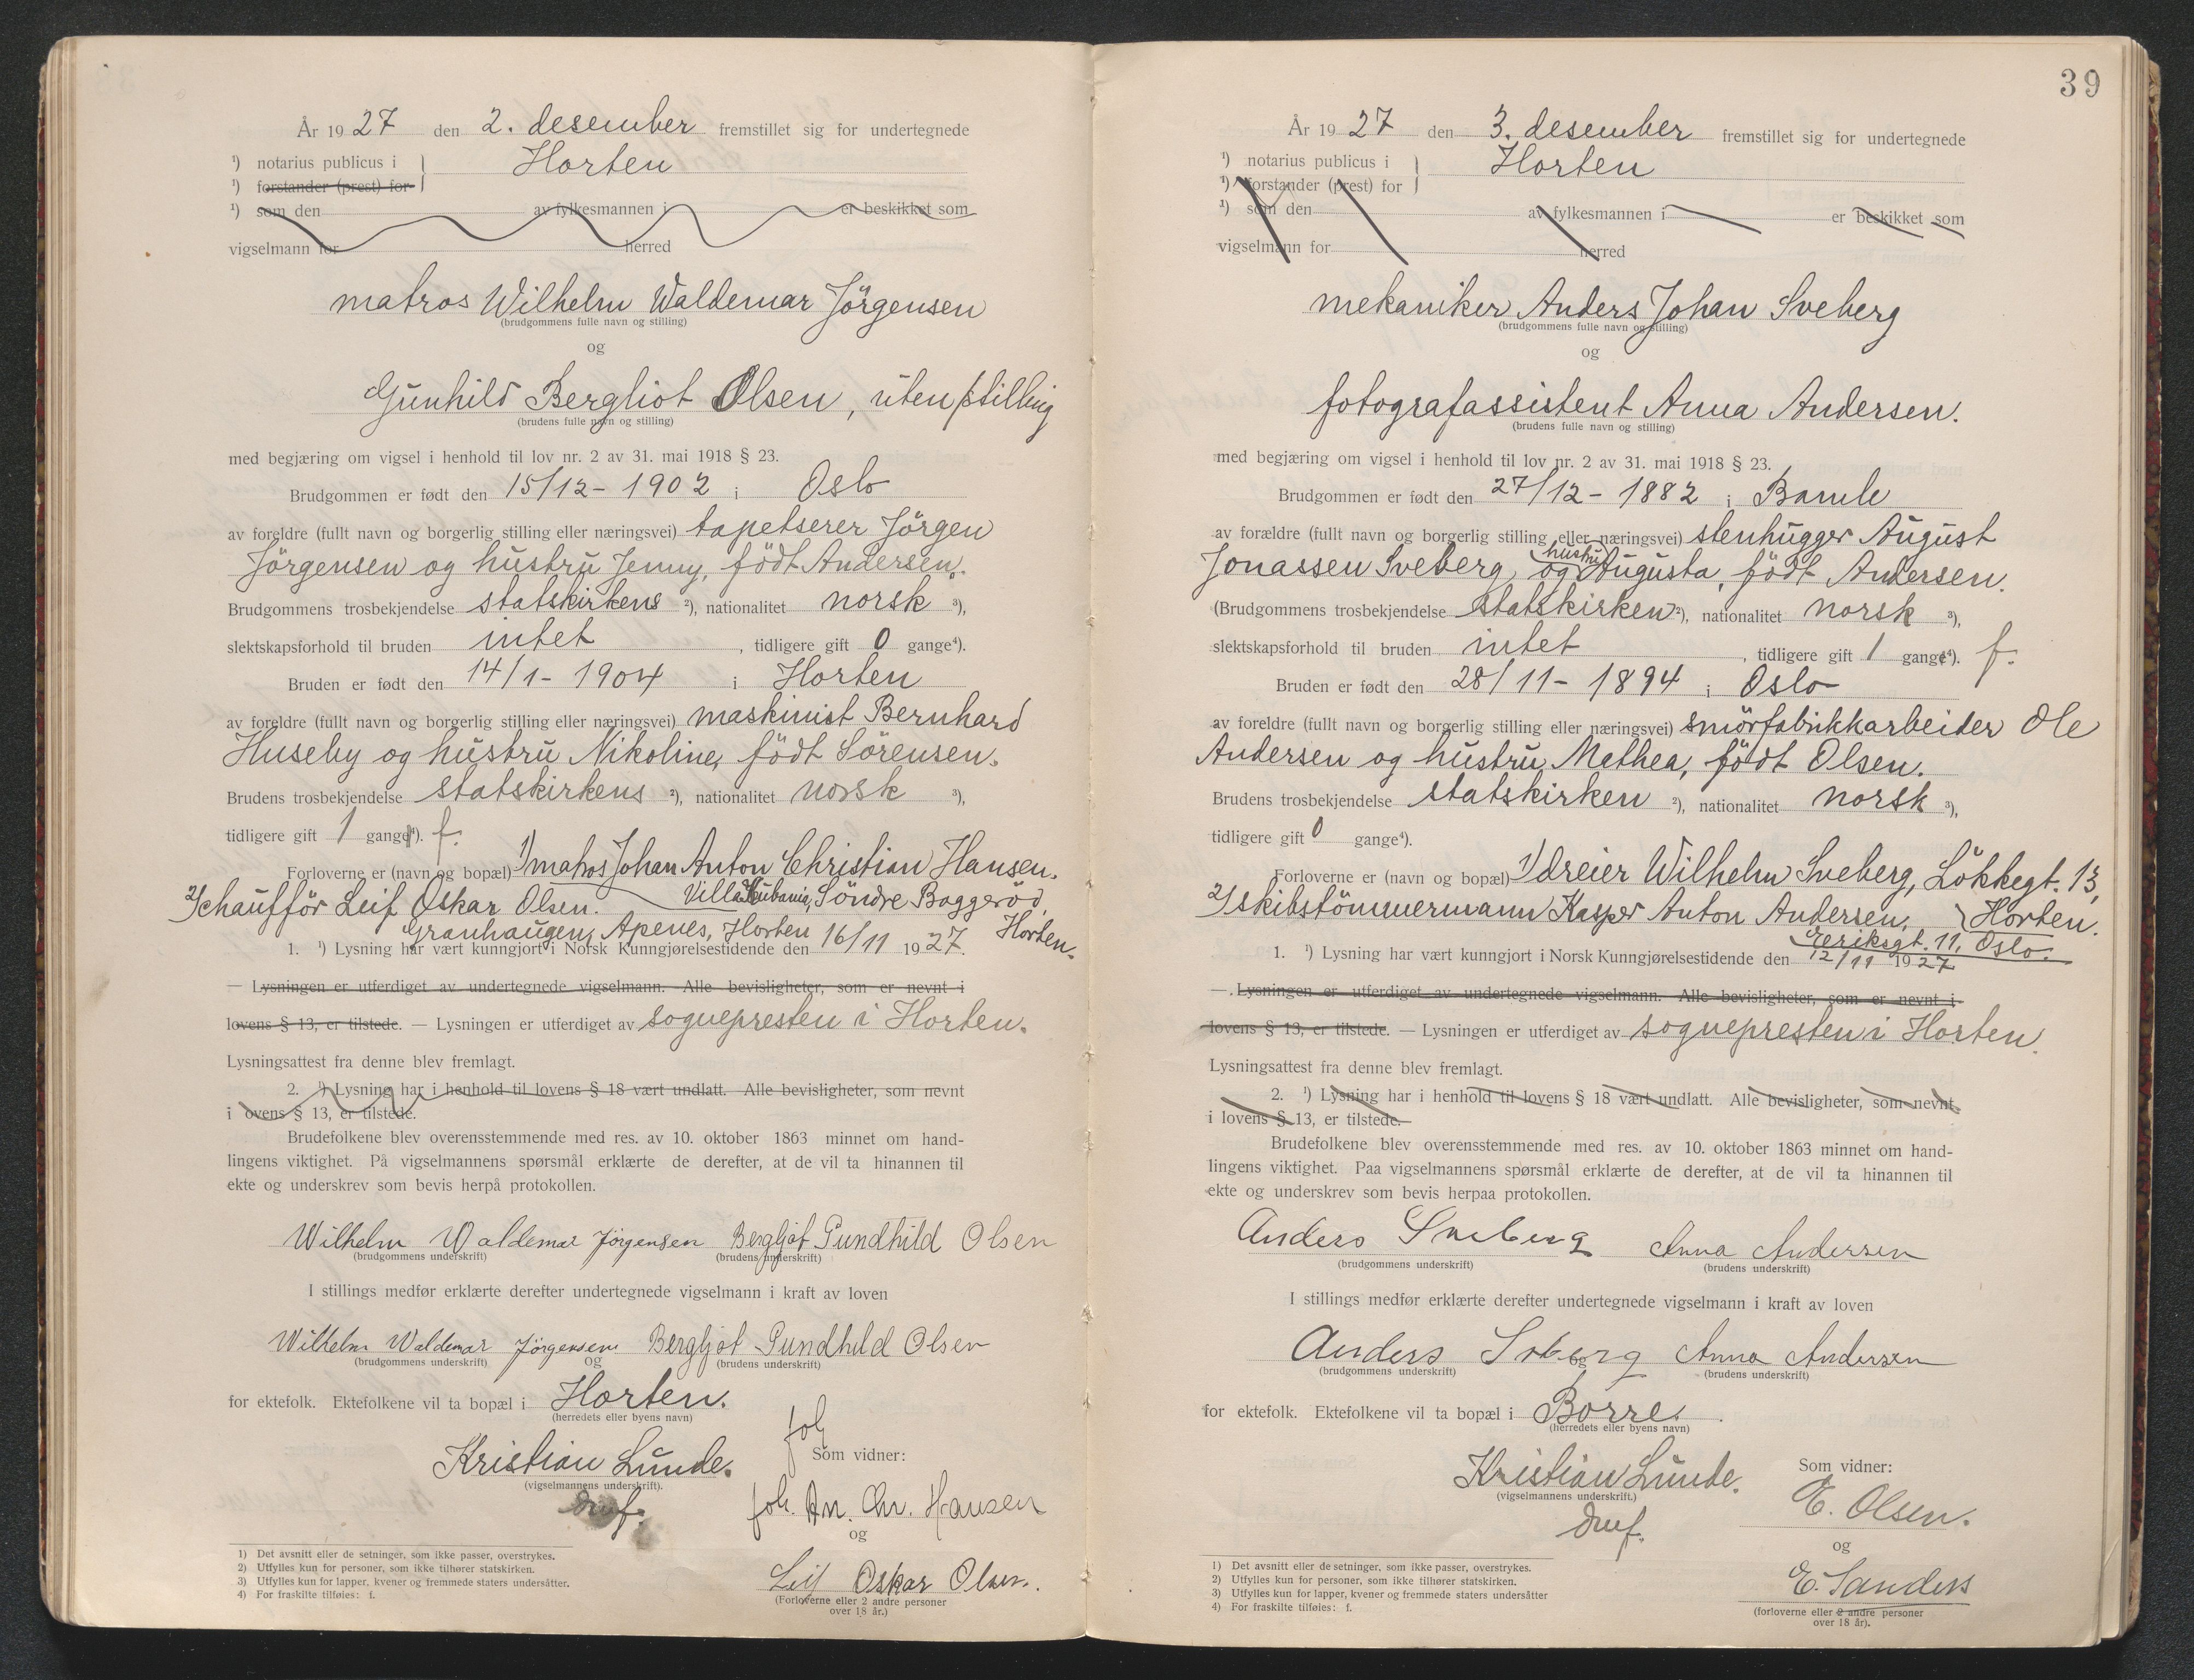 År 1927 den 2. desember fremstillet sig for undertegnede
¹) notarius publicus i Horten
¹) forstander (prest) for
¹) som den av fylkesmannen i er beskikket som
vigselmann for herred
matros Wilhelm Waldemar Jörgensen
(brudgommens fulle navn og stilling)
og
Gunhild Bergliot Olsen, uten stilling
(brudens fulle navn og stilling)
med begjæring om vigsel i henhold til lov nr. 2 av 31. mai 1918 § 23.
Brudgommen er født den 15/12 - 1902 i Oslo
av foreldre (fullt navn og borgerlig stilling eller næringsvei) tapetserer Jörgen
Jörgensen og hustru Jenny, födt Andersen.
Brudgommens trosbekjendelse statskirkens ²), nationalitet norsk ³),
slektskapsforhold til bruden intet, tidligere gift 0 gange⁴).
Bruden er født den 14/1 - 1904 i Horten
av foreldre (fullt navn og borgerlig stilling eller næringsvei) maskinist Bernhard
Huseby og hustru Nikoline, födt Sörensen.
Brudens trosbekjendelse statskirkens ²), nationalitet norsk ³),
tidligere gift 1 gange⁴). f.
Forloverne er (navn og bopæl) 1) matros Johan Anton Christian Hansen.
Villa Söndre Baggeröd, Horten.
2) chafför Leif Oskar Olsen.
Granhaugen, Apenes, Horten
1. ¹) Lysning har vært kunngjort i Norsk Kunngjørelsestidende den 16/11 1927.
— Lysningen er utferdiget av undertegnede vigselmann. Alle bevisligheter, som er nevnt i
lovens § 13, er tilstede. — Lysningen er utferdiget av sognepresten i Horten.
Lysningsattest fra denne blev fremlagt.
2. ¹) Lysning har i henhold til lovens § 18 vært undlatt. Alle bevisligheter, som nevnt
i ovens § 13, er tilstede.
Brudefolkene blev overensstemmende med res. av 10. oktober 1863 minnet om hand-
lingens viktighet. På vigselmannens spørsmål erklærte de derefter, at de vil ta hinannen til
ekte og underskrev som bevis herpå protokollen.
Wilhelm Waldemar Jörgensen Bergljot Gundhild Olsen
(brudgommens underskrift) (brudens underskrift)
I stillings medfør erklærte derefter undertegnede vigselmann i kraft av loven
Wilhelm Waldemar Jörgensen Bergljot Gundhild Olsen
(brudgommens underskrift) og (brudens underskrift)
for ektefolk. Ektefolkene vil ta bopæl i Horten.
(herredets eller byens navn)
Joh
Kristian Lunde. Som vidner:
(vigselmannens underskrift).
Joh. An. Chr. Hansen
og
Leif Oskar Olsen.
(Forloverne eller 2 andre personer
over 18 år.)
1) Det avsnitt eller de setninger, som ikke passer, overstrykes.
2) Utfylles kun for personer, som ikke tilhører statskirken.
3) Utfylles kun for lapper, kvener og fremmede staters undersåtter.
4) For fraskilte tilføies: f.
39
År 1927 den 3. desember fremstillet sig for undertegnede
¹) notarius publicus i Horten
¹) forstander (prest) for
¹) som den av fylkesmannen i er beskikket som
vigselmann for herred
mekaniker Anders Johan Sveberg
(brudgommens fulle navn og stilling)
og
fotografassistent Anna Andersen.
(brudens fulle navn og stilling)
med begjæring om vigsel i henhold til lov nr. 2 av 31. mai 1918 § 23.
Brudgommen er født den 27/12 - 1882 i Bamle
av forældre (fullt navn og borgerlig stilling eller næringsvei) stenhugger August
Jonassen Sveberg, og hustru Augusta, födt Andersen.
(Brudgommens trosbekjendelse statskirken ²), nationalitet norsk ³),
slektskapsforhold til bruden intet, tidligere gift 1 gange⁴). f.
Bruden er født den 28/11 - 1894 i Oslo
av foreldre (fullt navn og borgerlig stilling eller næringsvei) smörfabrikkarbeider Ole
Andersen og hustru Mathea, födt Olsen.
Brudens trosbekjendelse statskirken ²), nationalitet norsk ³),
tidligere gift 0 gange⁴).
Forloverne er (navn og bopæl) 1) dreier Wilhelm Sveberg, Lökkegt. 13,
Horten.
2) skibstömmermann Kasper Anton Andersen,
Eriksgt. 11, Oslo.
1. ¹) Lysning har vært kunngjort i Norsk Kunngjørelsestidende den 12/11 1927
—. Lysningen er utferdiget av undertegnede vigselmann. Alle bevisligheter, som er nevnt i
lovens § 13, er tilstede. — Lysningen er utferdiget av sognepresten i Horten.
Lysningsattest fra denne blev fremlagt.
2. ¹) Lysning har i henhold til lovens § 18 vært undlatt. Alle bevisligheter, som nevnt
i lovens § 13, er tilstede.
Brudefolkene blev overensstemmende med res. av 10. oktober 1863 minnet om hand-
lingens viktighet. Paa vigselmannens spørsmål erklærte de derefter, at de vil ta hinannen til
ekte og underskrev som bevis herpaa protokollen.
Anders Sveberg Anna Andersen
(brudgommens underskrift) (brudens underskrift)
I stillings medfør erklærte derefter undertegnede vigselmann i kraft av loven
Anders Sveberg og Anna Andersen
(brudgommens underskrift) (brudens underskrift)
for ektefolk. Ektefolkene vil ta bopæl i Borre.
(herredets eller byens navn)
Kristian Lunde. Som vidner:
(vigselmannens underskrift.)
E. Olsen.
og
E. Sanders
(forloverne eller 2 andre personer
over 18 år).
1) Det avsnitt eller de setninger, som ikke passer, overstrykes.
2) Utfylles kun for personer, som ikke tilhører statskirken.
3) Utfylles kun for lapper, kvener og fremmede staters undersåtter
4) For fraskilte tilføies: f.